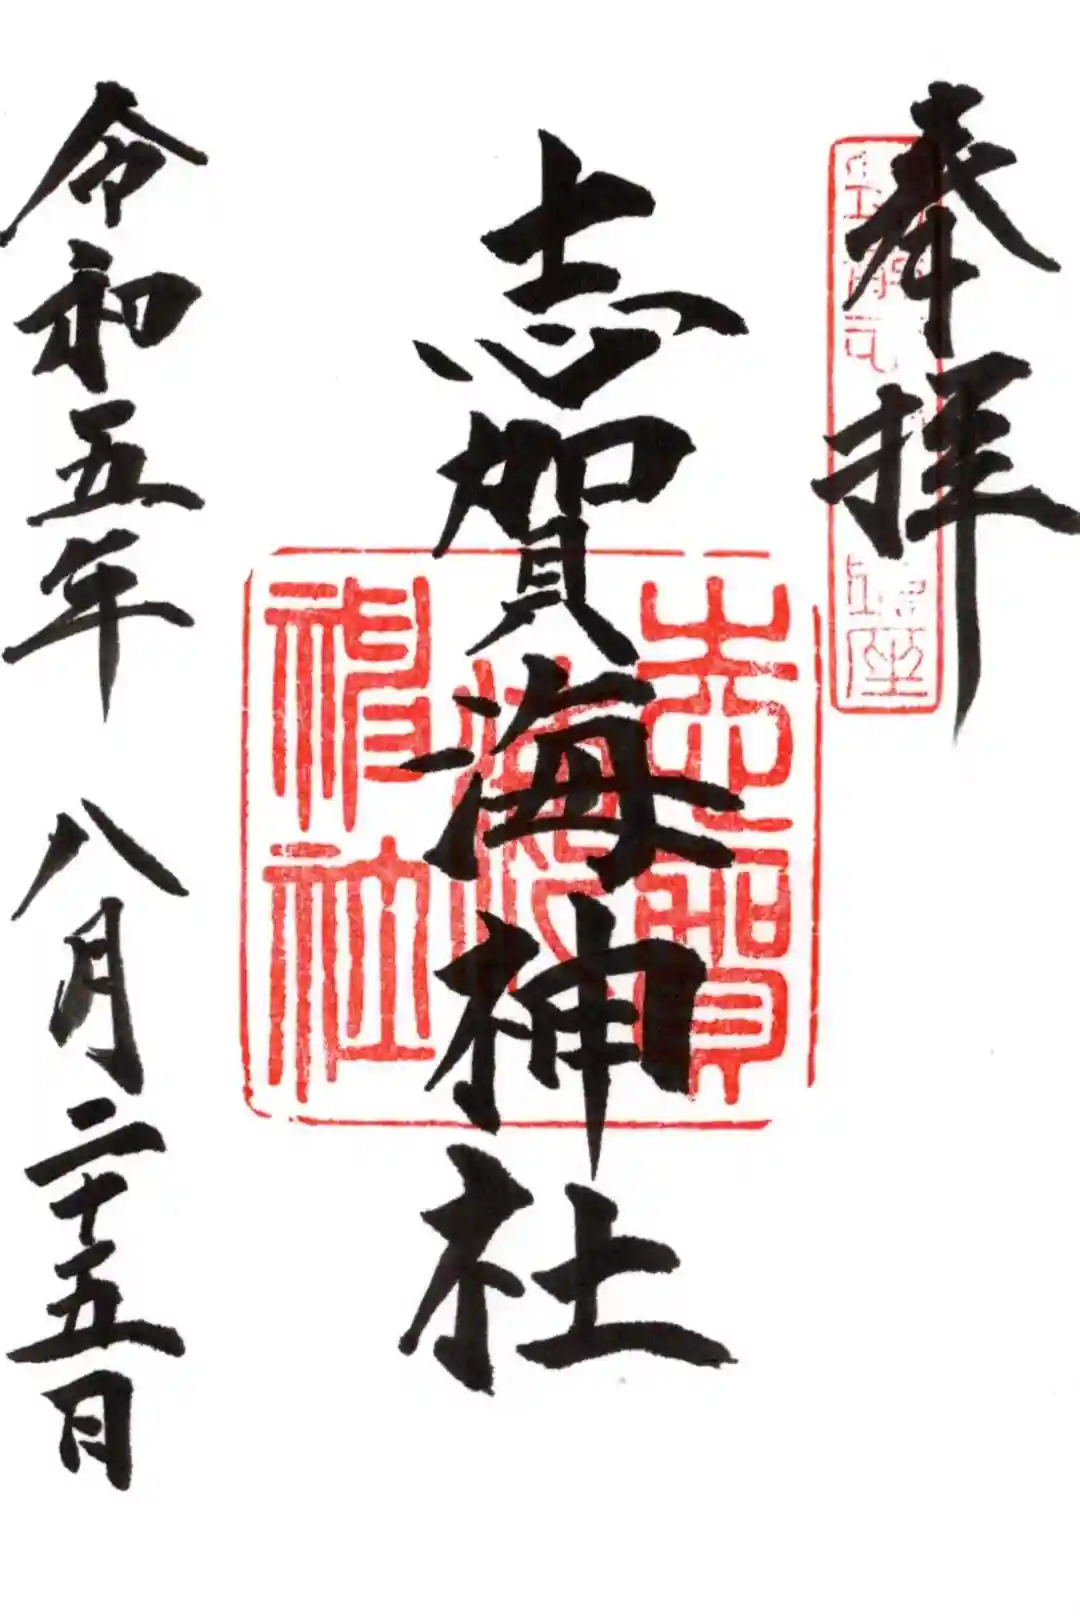 奉拝
志賀海神社
志賀海神社
令和五年 八月二十五日